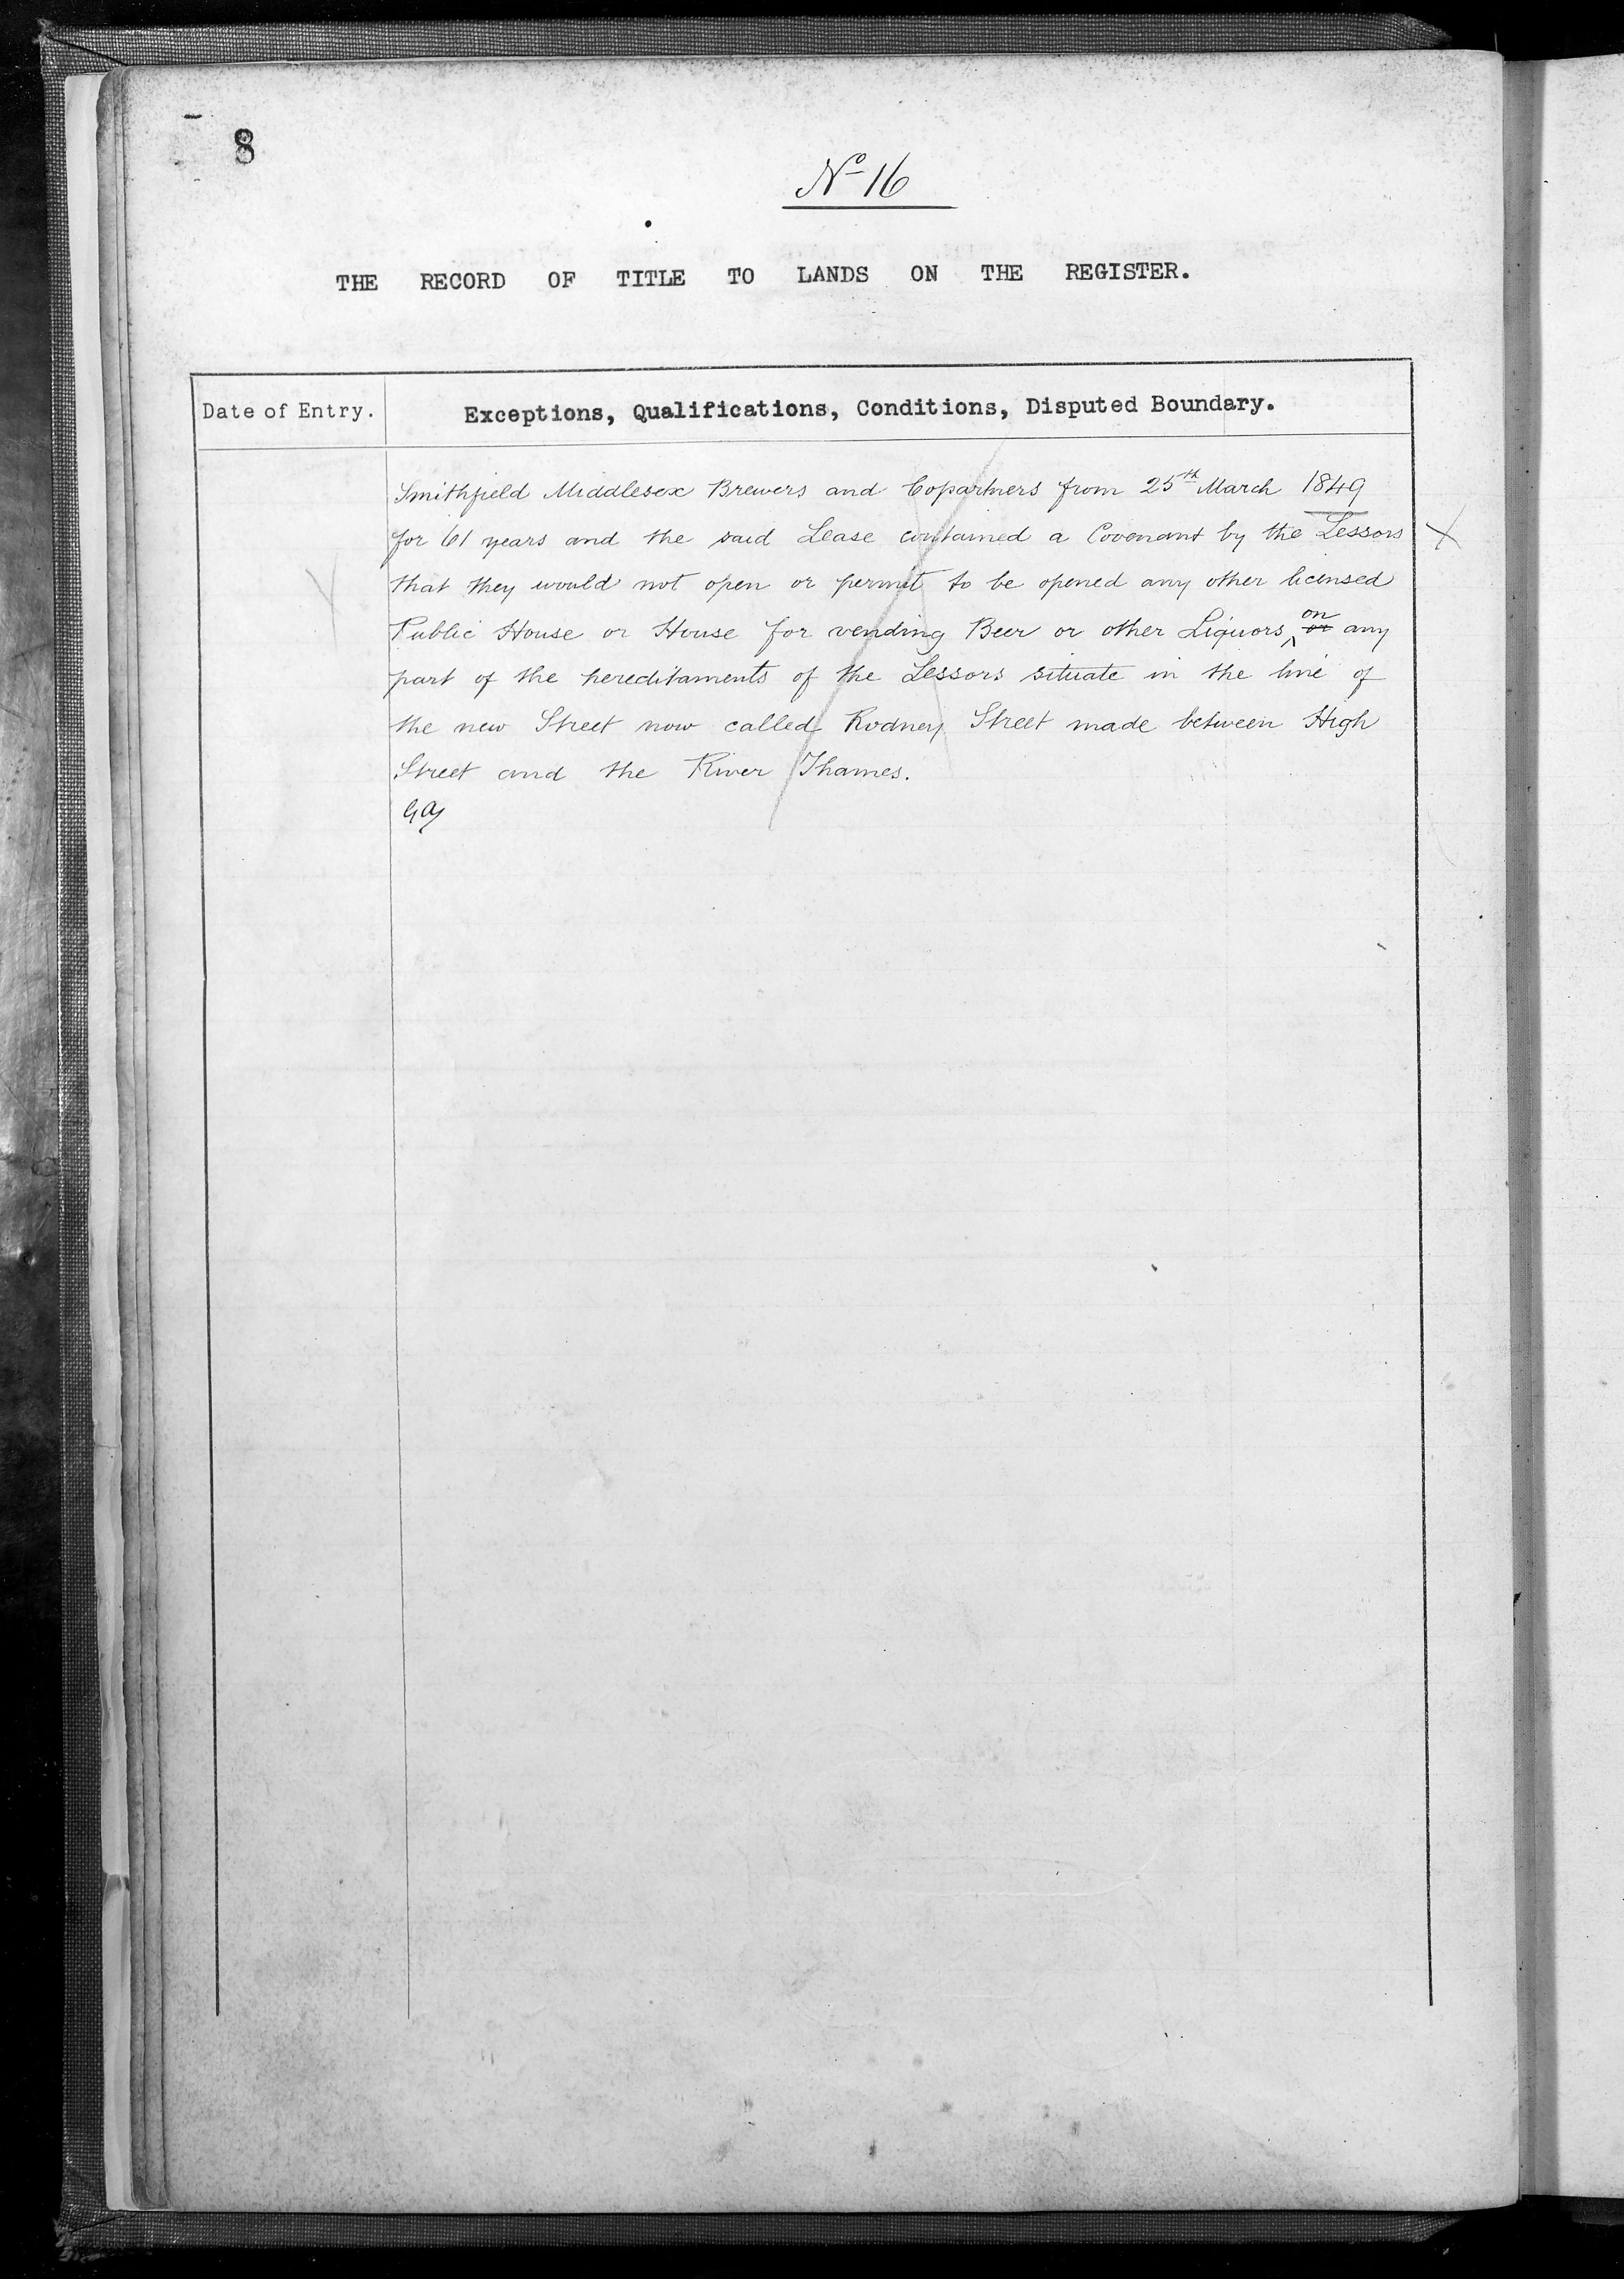 8
No 16
THE RECORD OF TITLE TO LANDS ON THE REGISTER.
Date of Entry.
Exceptions, Qualifications, Conditions, Disputed Boundary.
Smithfield Middlesex Brewers and Copartners from 25th March 1849
for 61 years and the said Lease contained a Covenant by the Lessors
that they would not open or permit to be opened any other licensed
Public House or House for vending Beer or other Liquors on or any
part of the hereditaments of the Lessors situate in the line of
the new Street now called Rodney Street made between High
Street and the River Thames.